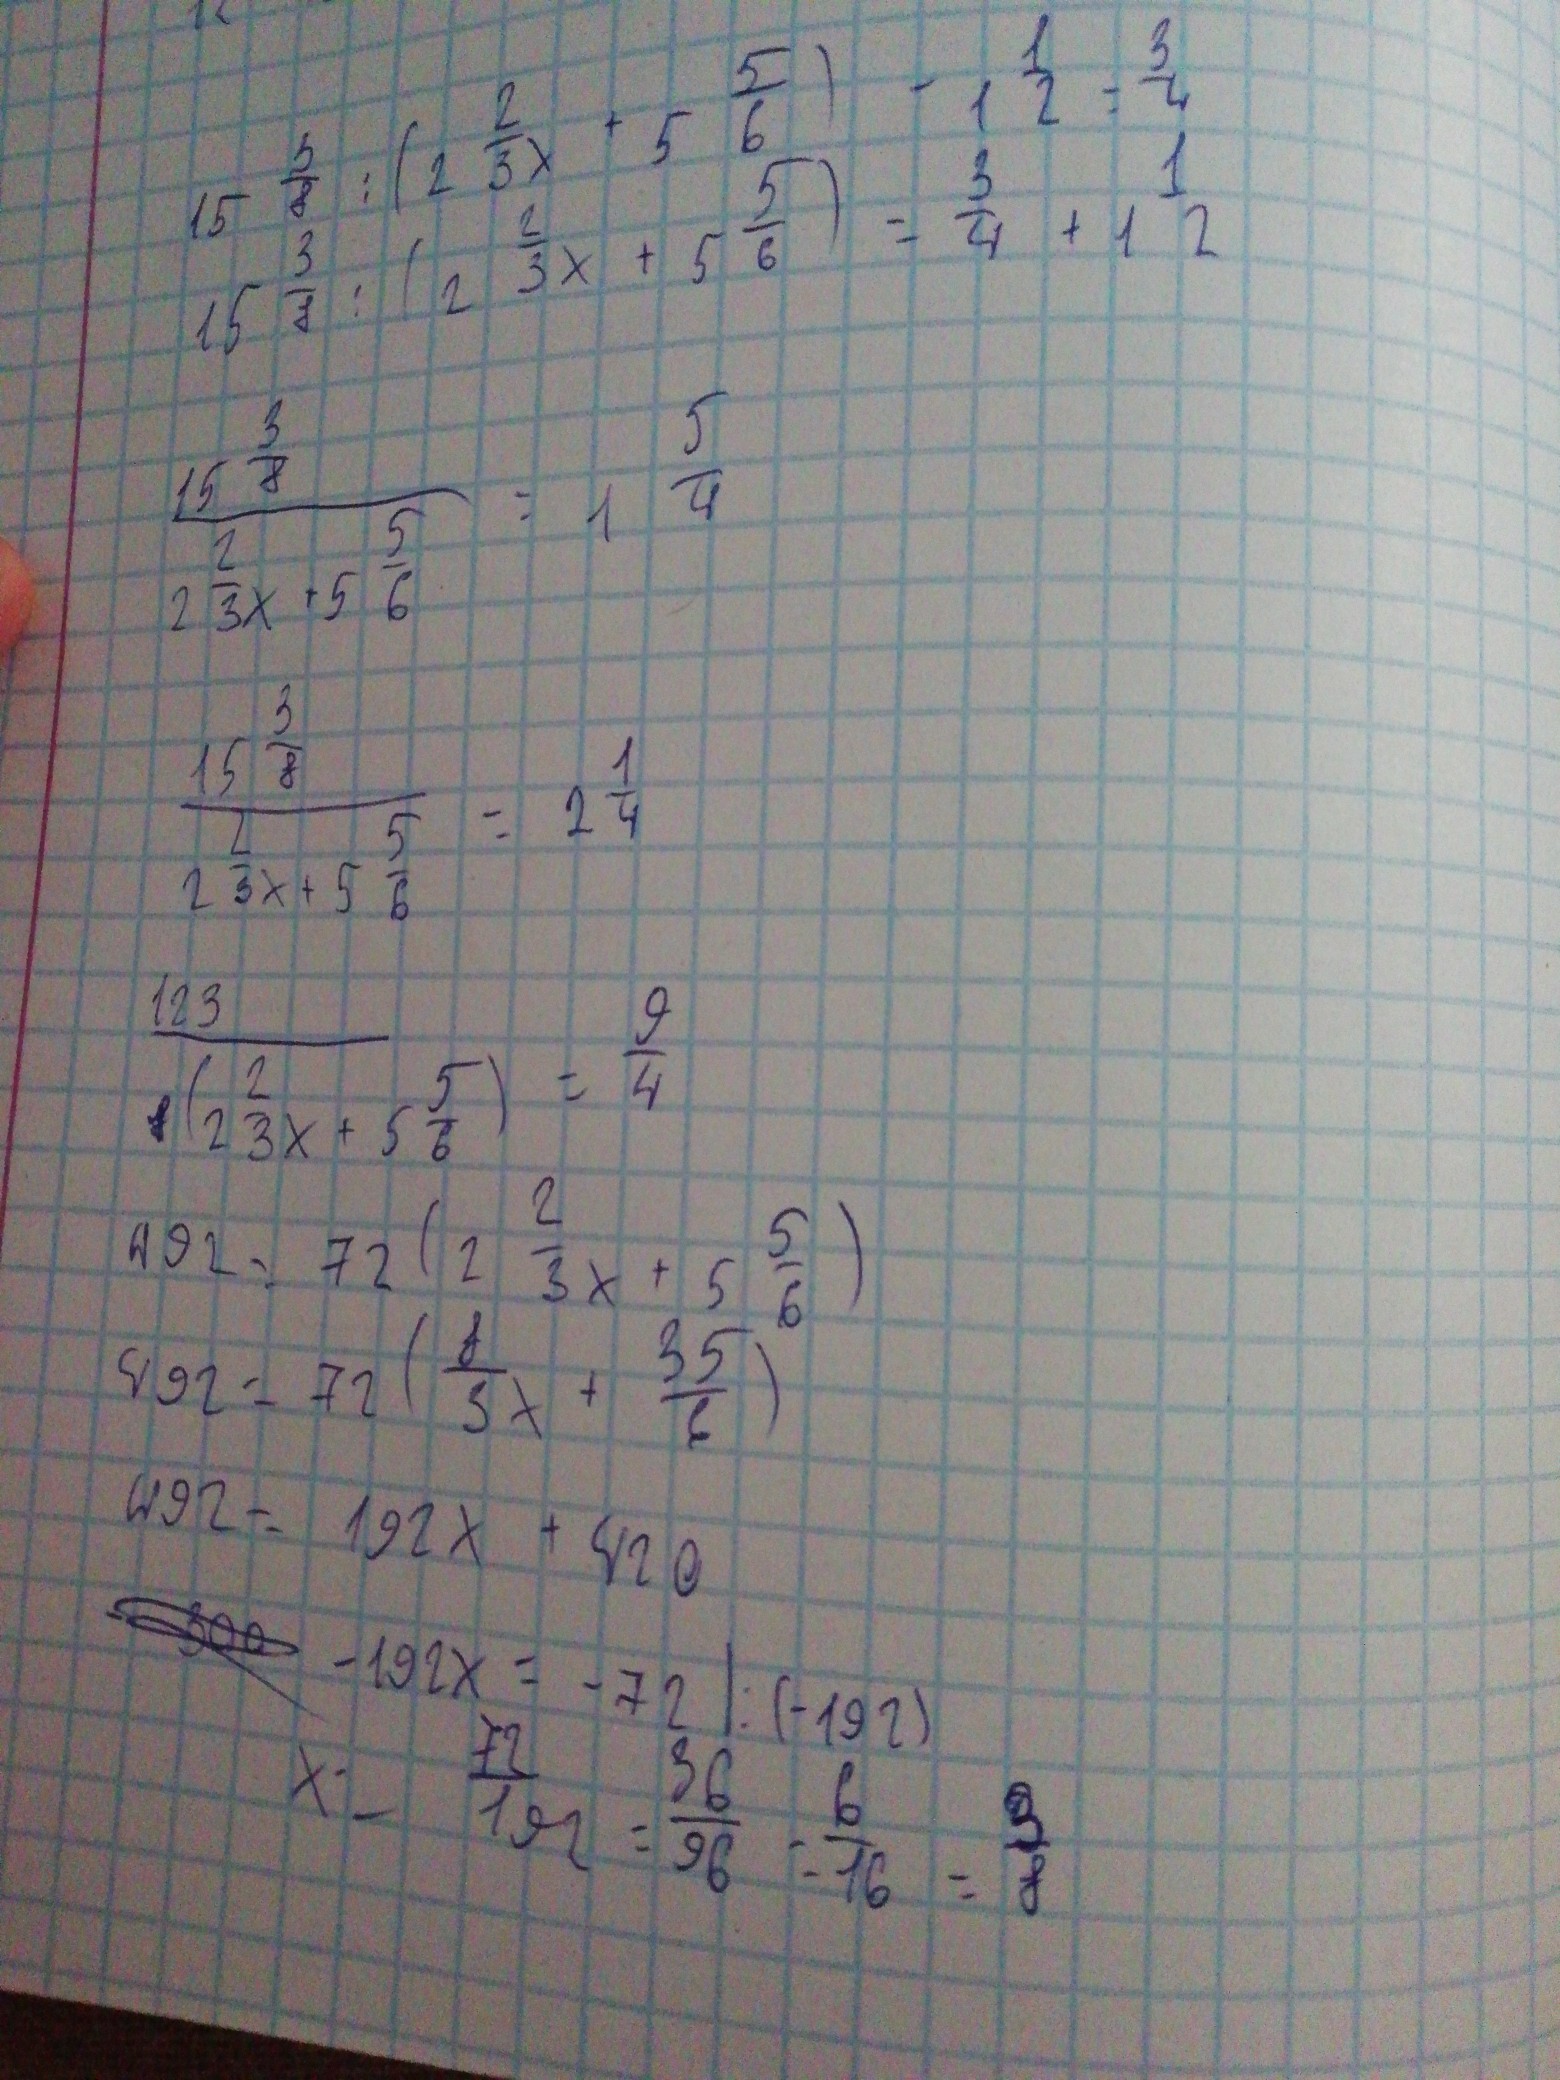 15 3/8 : (2 2/3x + 5 5/6) - 1 1/2 = 3/4
15 3/8 : (2 2/3x + 5 5/6) = 3/4 + 1 1/2
15 3/8 / 2 2/3x + 5 5/6 = 1 5/4
15 3/8 / 2 2/3x + 5 5/6 = 2 1/4
123 / 8(2 2/3x + 5 5/6) = 9/4
492 = 72(2 2/3x + 5 5/6)
492 = 72(8/3x + 35/6)
492 = 192x + 420
-192x = -72 |:(-192)
x = 72/192 = 36/96 = 6/16 = 3/8